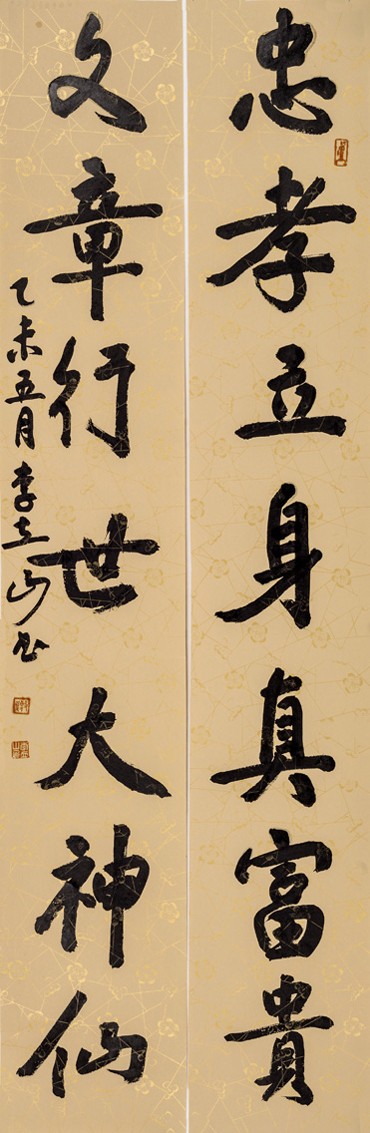 忠孝立身真富貴
文章行世大神仙
乙未五月李立山書